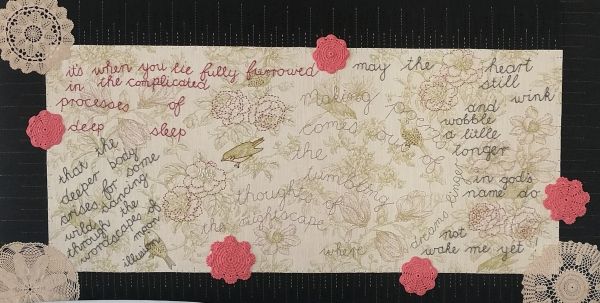 it's when you lie fully furrowed
in the complicated
processes of
deep sleep
that the
deeper body
arises for some
wild dancing
through the
wordscapes of
moon
illusion
making
comes out of
the tumbling
thoughts of
the nightscape
where dreams linger
may the heart
still
wink
and
wobble
a little
longer
in god's
name do
not
wake me yet!